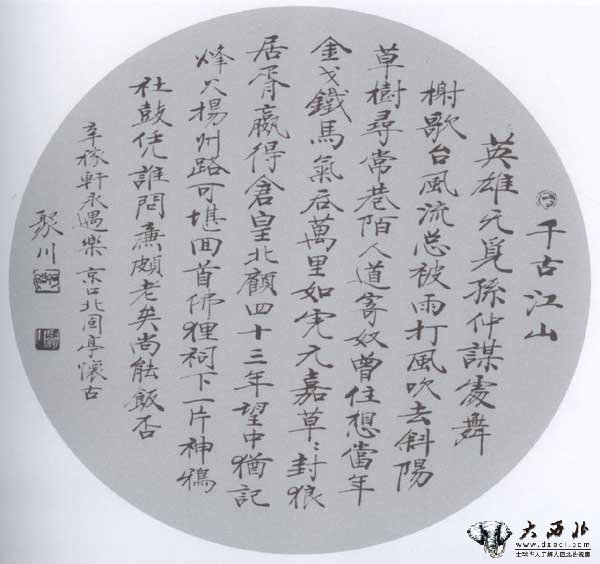 千古江山
英雄无覓孫仲謀處舞
榭歌台風流总被雨打風吹去斜陽
草樹尋常巷陌人道寄奴曾住想當年
金戈鐵馬氣吞萬里如虎元嘉草〻封狼
居胥贏得倉皇北顧四十三年望中猶記
烽火揚州路可堪回首佛狸祠下一片神鴉
社鼓凭誰問廉頗老矣尚能飯否
辛稼軒永遇樂 京口北固亭懷古
聚川
大西北